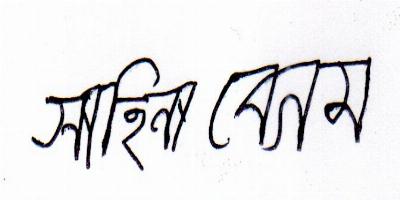 সাহিনা বেগম